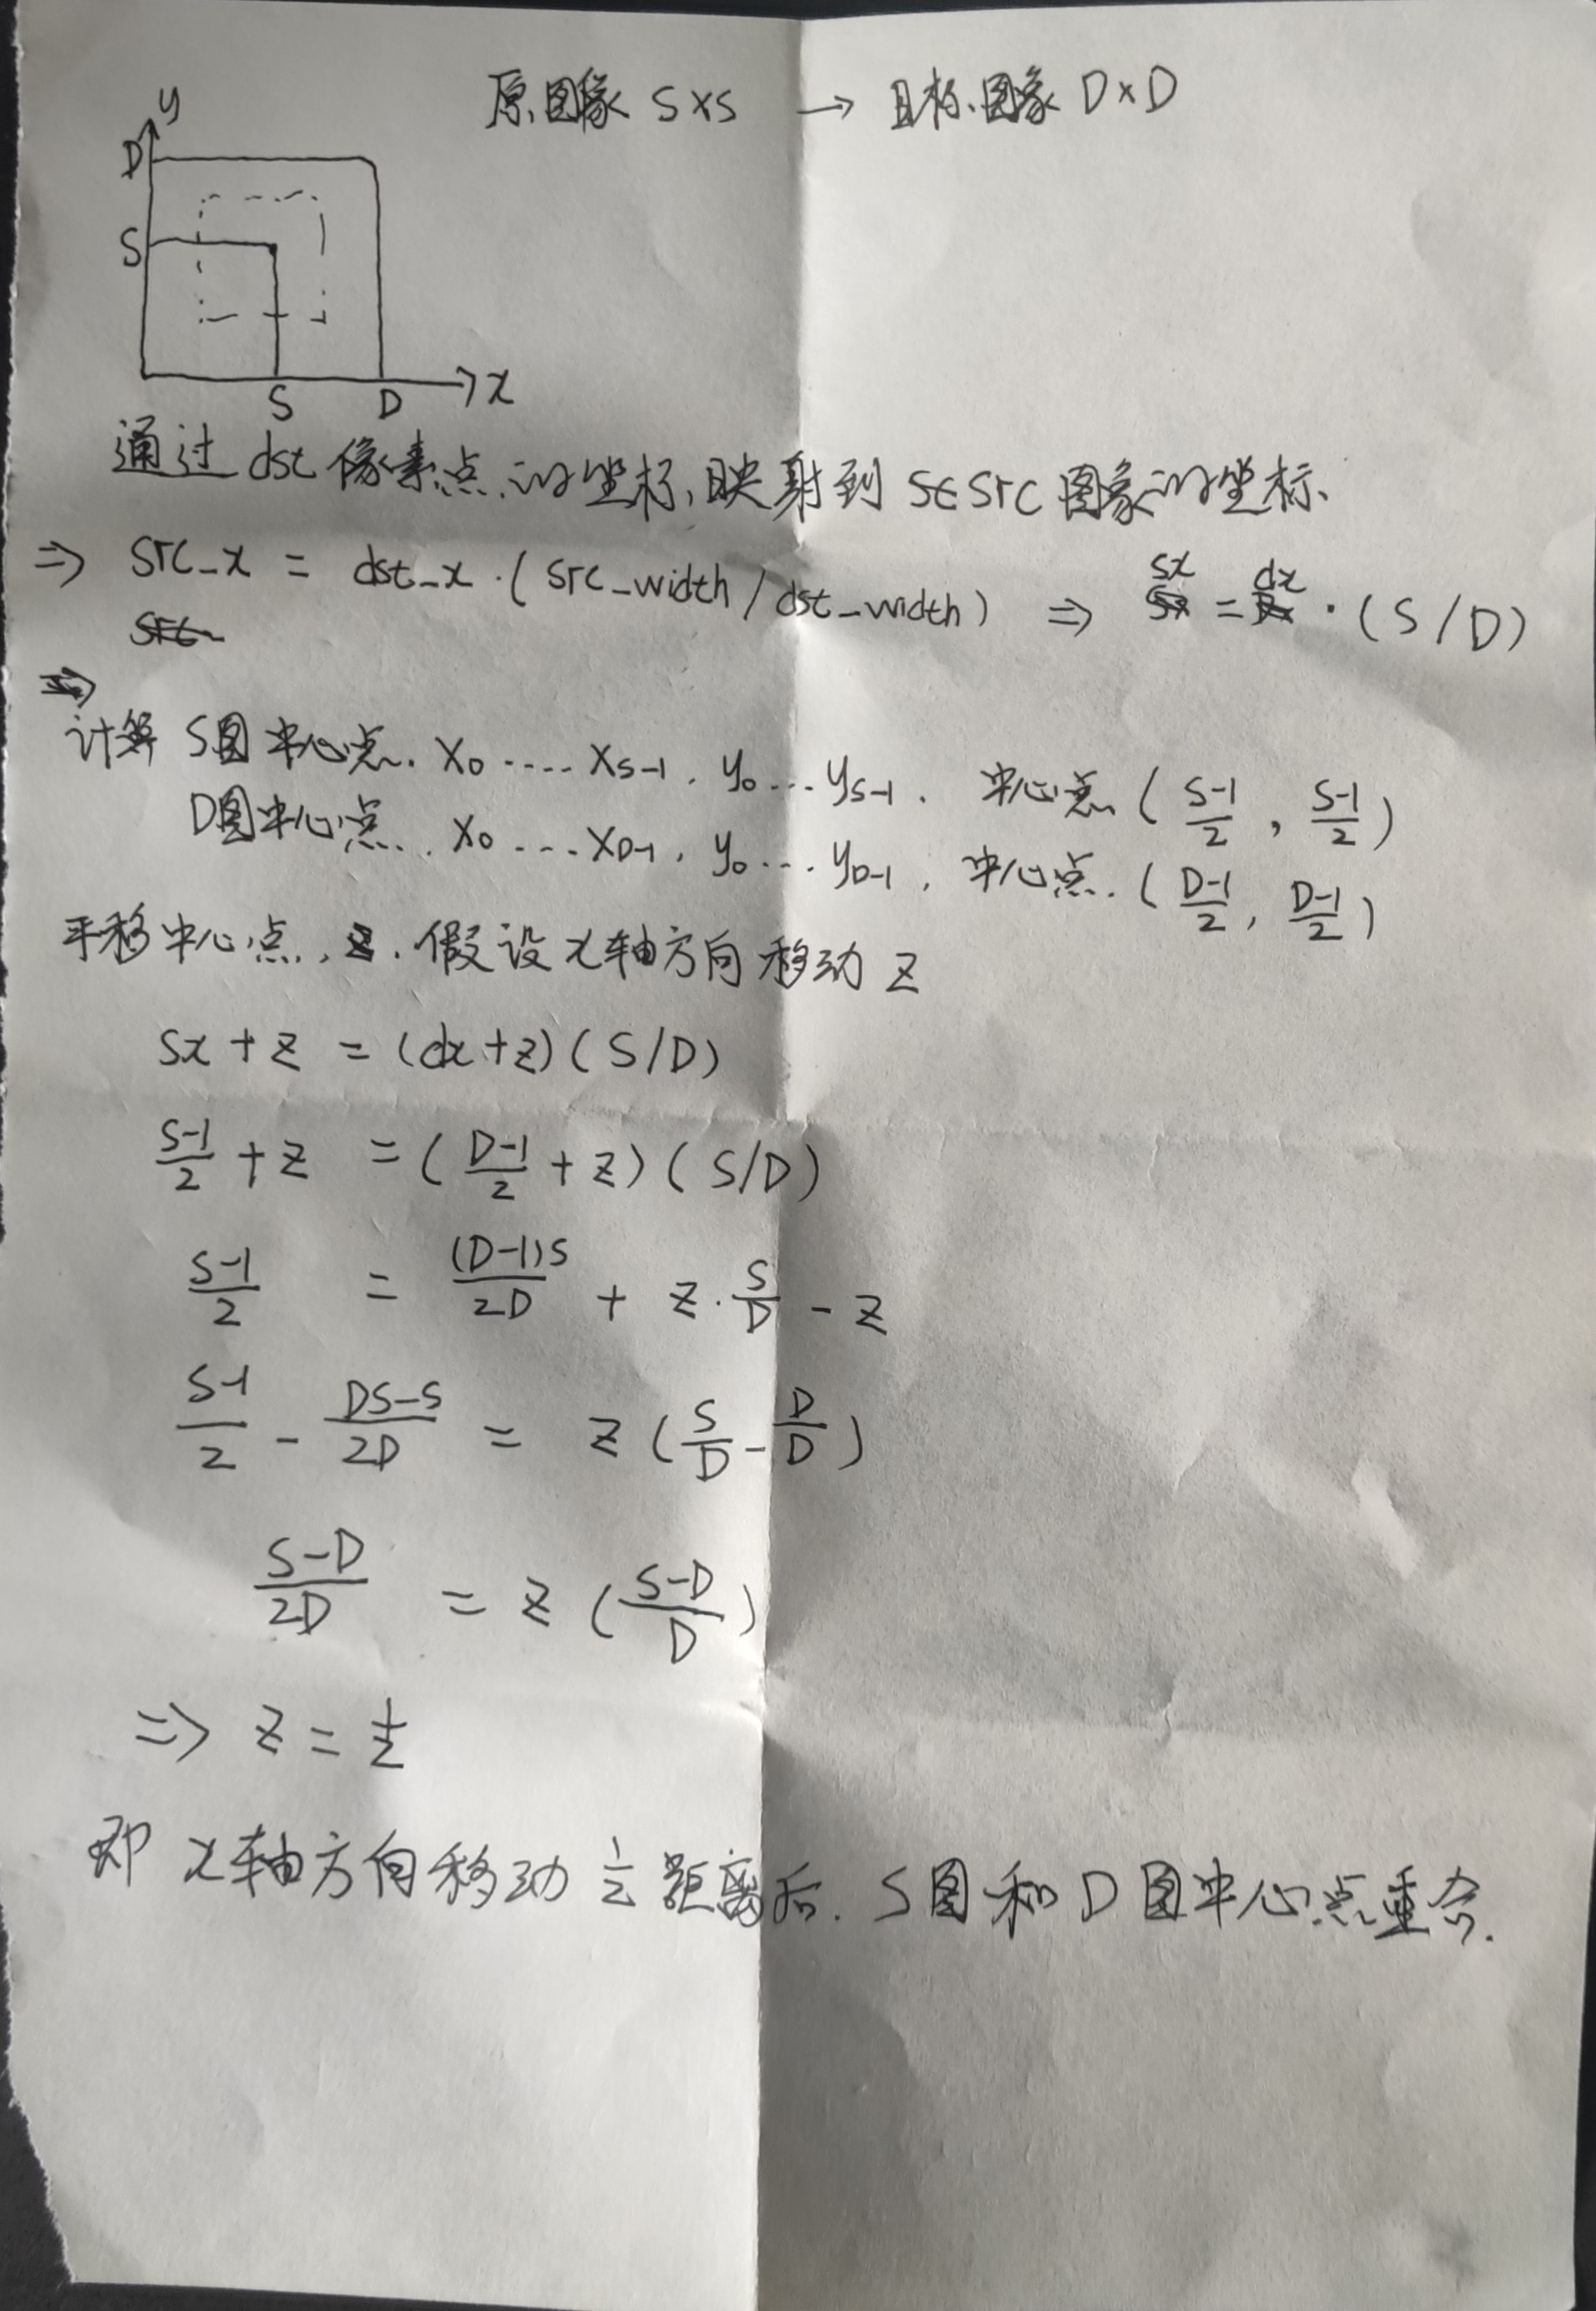 原图像 S×S → 目标图像 D×D
y
D
S
S D x
通过 dst 像素点的坐标,映射到 St src 图像的坐标、
⇒ src_x = dst_x·( src_width / dst_width ) ⇒ sx = dx · ( S / D )
⇒
计算 S图中心点. x₀ ···· x_{S-1} . y₀ ... y_{S-1} . 中心点 ( \frac{S-1}{2} , \frac{S-1}{2} )
D图中心点. . x₀ ... x_{D-1} . y₀ ... y_{D-1} . 中心点. ( \frac{D-1}{2} , \frac{D-1}{2} )
平移中心点, z . 假设 x轴方向移动 z
sx + z = (dx+z) ( S/D )
\frac{S-1}{2} + z = ( \frac{D-1}{2} + z ) ( S/D )
\frac{S-1}{2} = \frac{(D-1)S}{2D} + z · \frac{S}{D} - z
\frac{S-1}{2} - \frac{DS-S}{2D} = z ( \frac{S}{D} - \frac{D}{D} )
\frac{S-D}{2D} = z ( \frac{S-D}{D} )
⇒ z = \frac{1}{2}
即 x轴方向移动 \frac{1}{2} 距离后. S图和D图中心点重合.